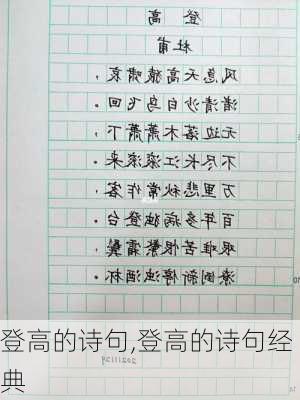 登高
杜甫
风急天高猿啸哀，
渚清沙白鸟飞回。
无边落木萧萧下，
不尽长江滚滚来。
万里悲秋常作客，
百年多病独登台。
艰难苦恨繁霜鬓，
潦倒新停浊酒杯。
登高的诗句,登高的诗句经
典